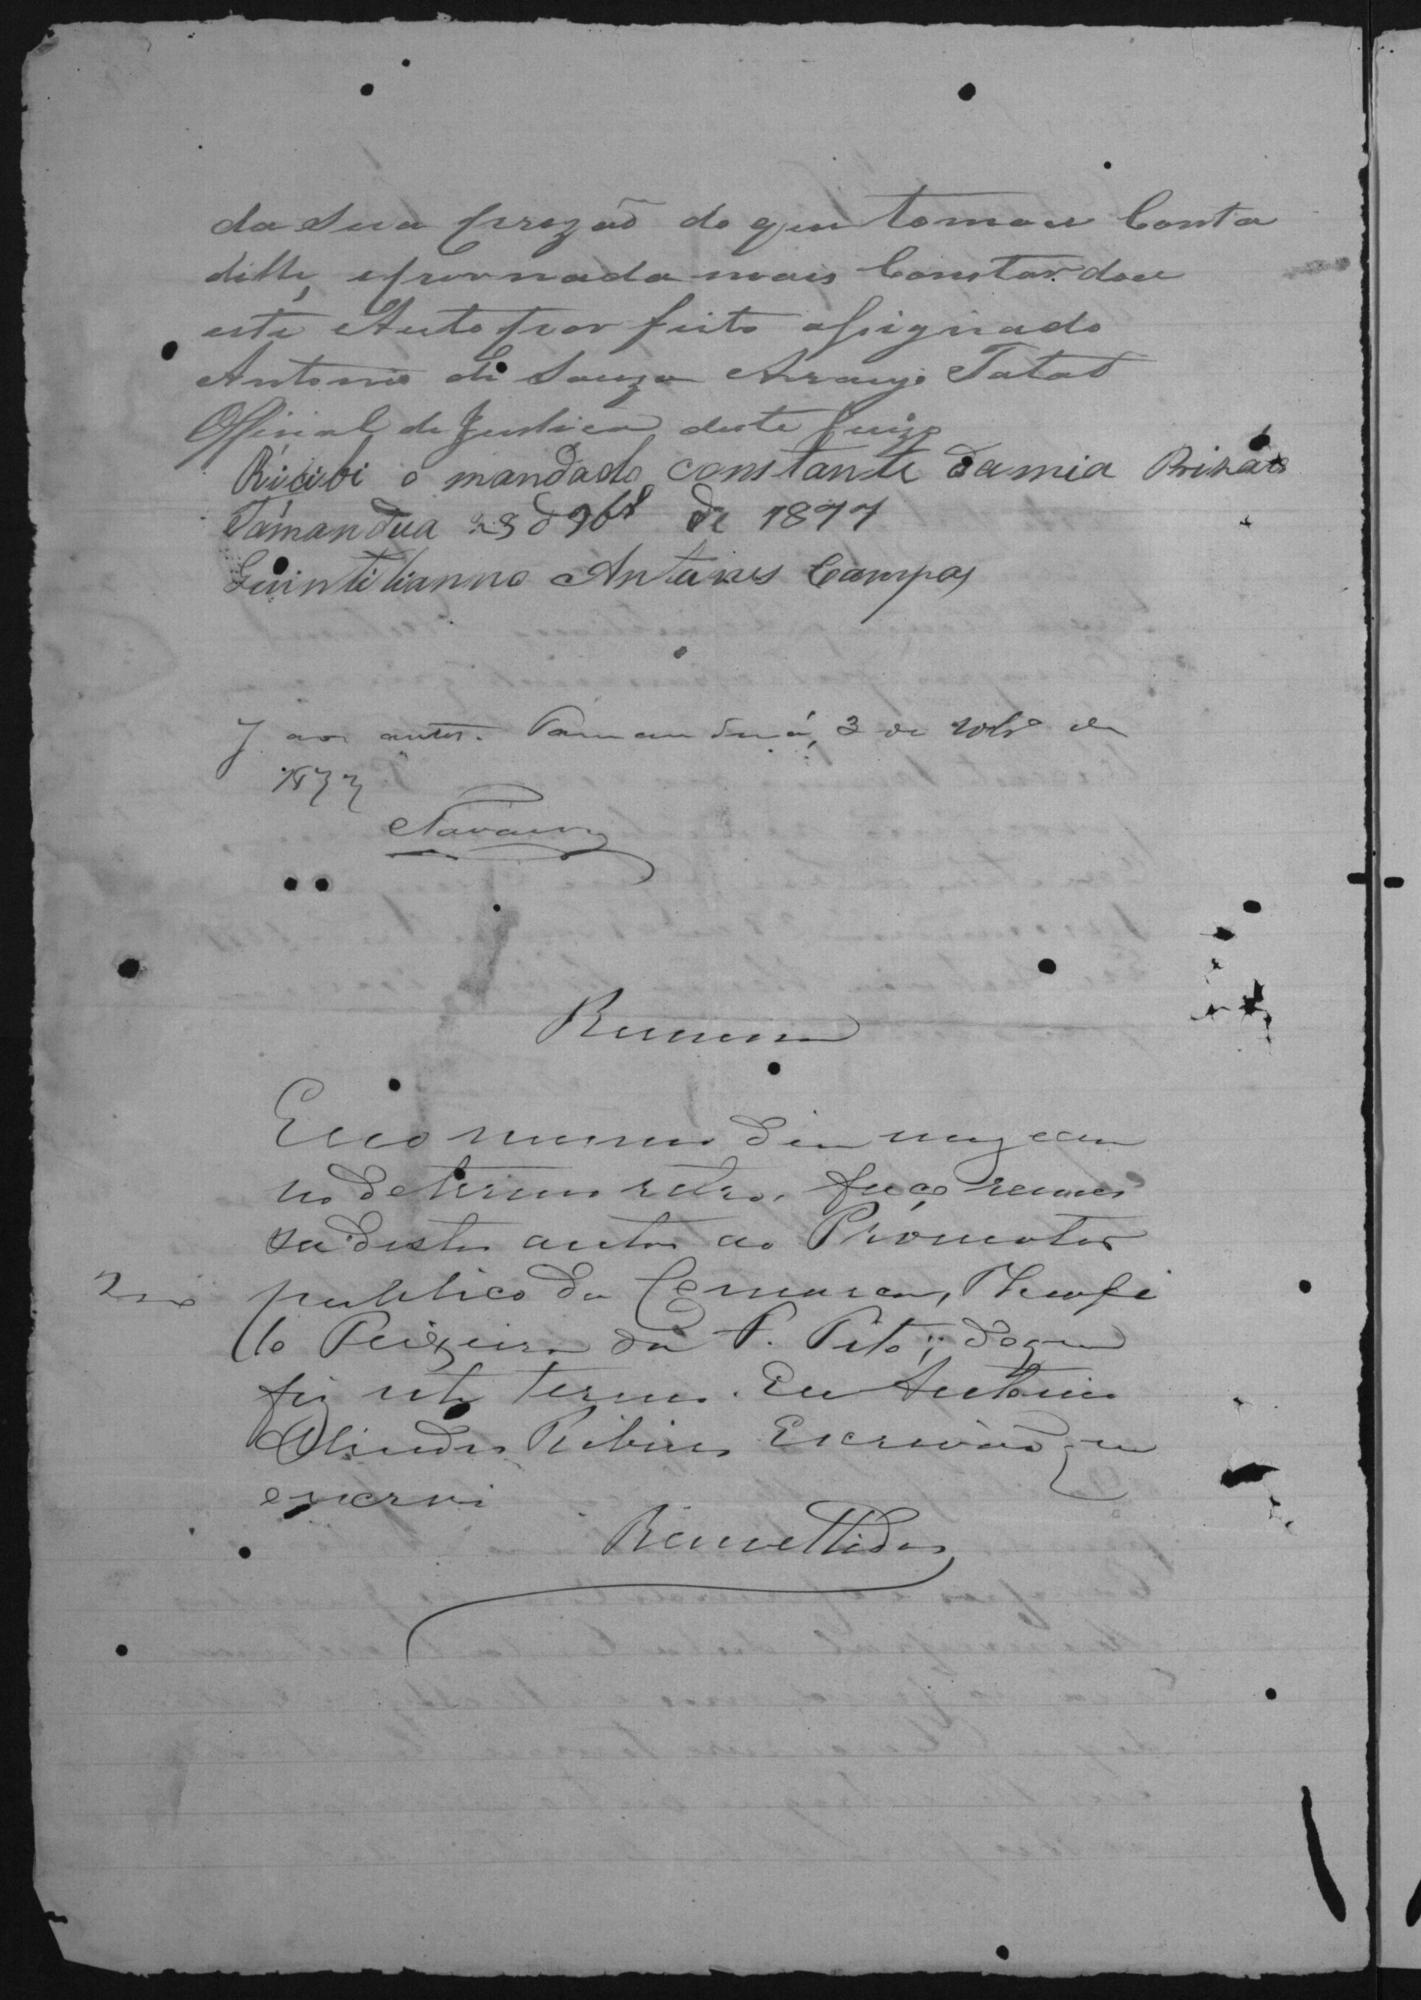 da sua prezão do que tomou Conta
delle, e por nada mais Constar dou
este Auto por feito assignado
Antonio de Souza Araujo Tatat
Official de Justica deste Juizo
Ricibi o mandado constante da mia Prizão
Tamandua 23 d 9br de 1877
Quintilianno Antunes Campos
J aos autos. Tamanduá, 3 de de
1877
Navarro
Remessa
E no mesmo dia mez e an
no do termo retro, faço remes
sa destes autos ao Promotor
publico da Comarca, Theofi
lo Pereira da S. do que
fiz este termo. Eu Antonio
Ribeiro Escrivão que
escrevi
Remettidos